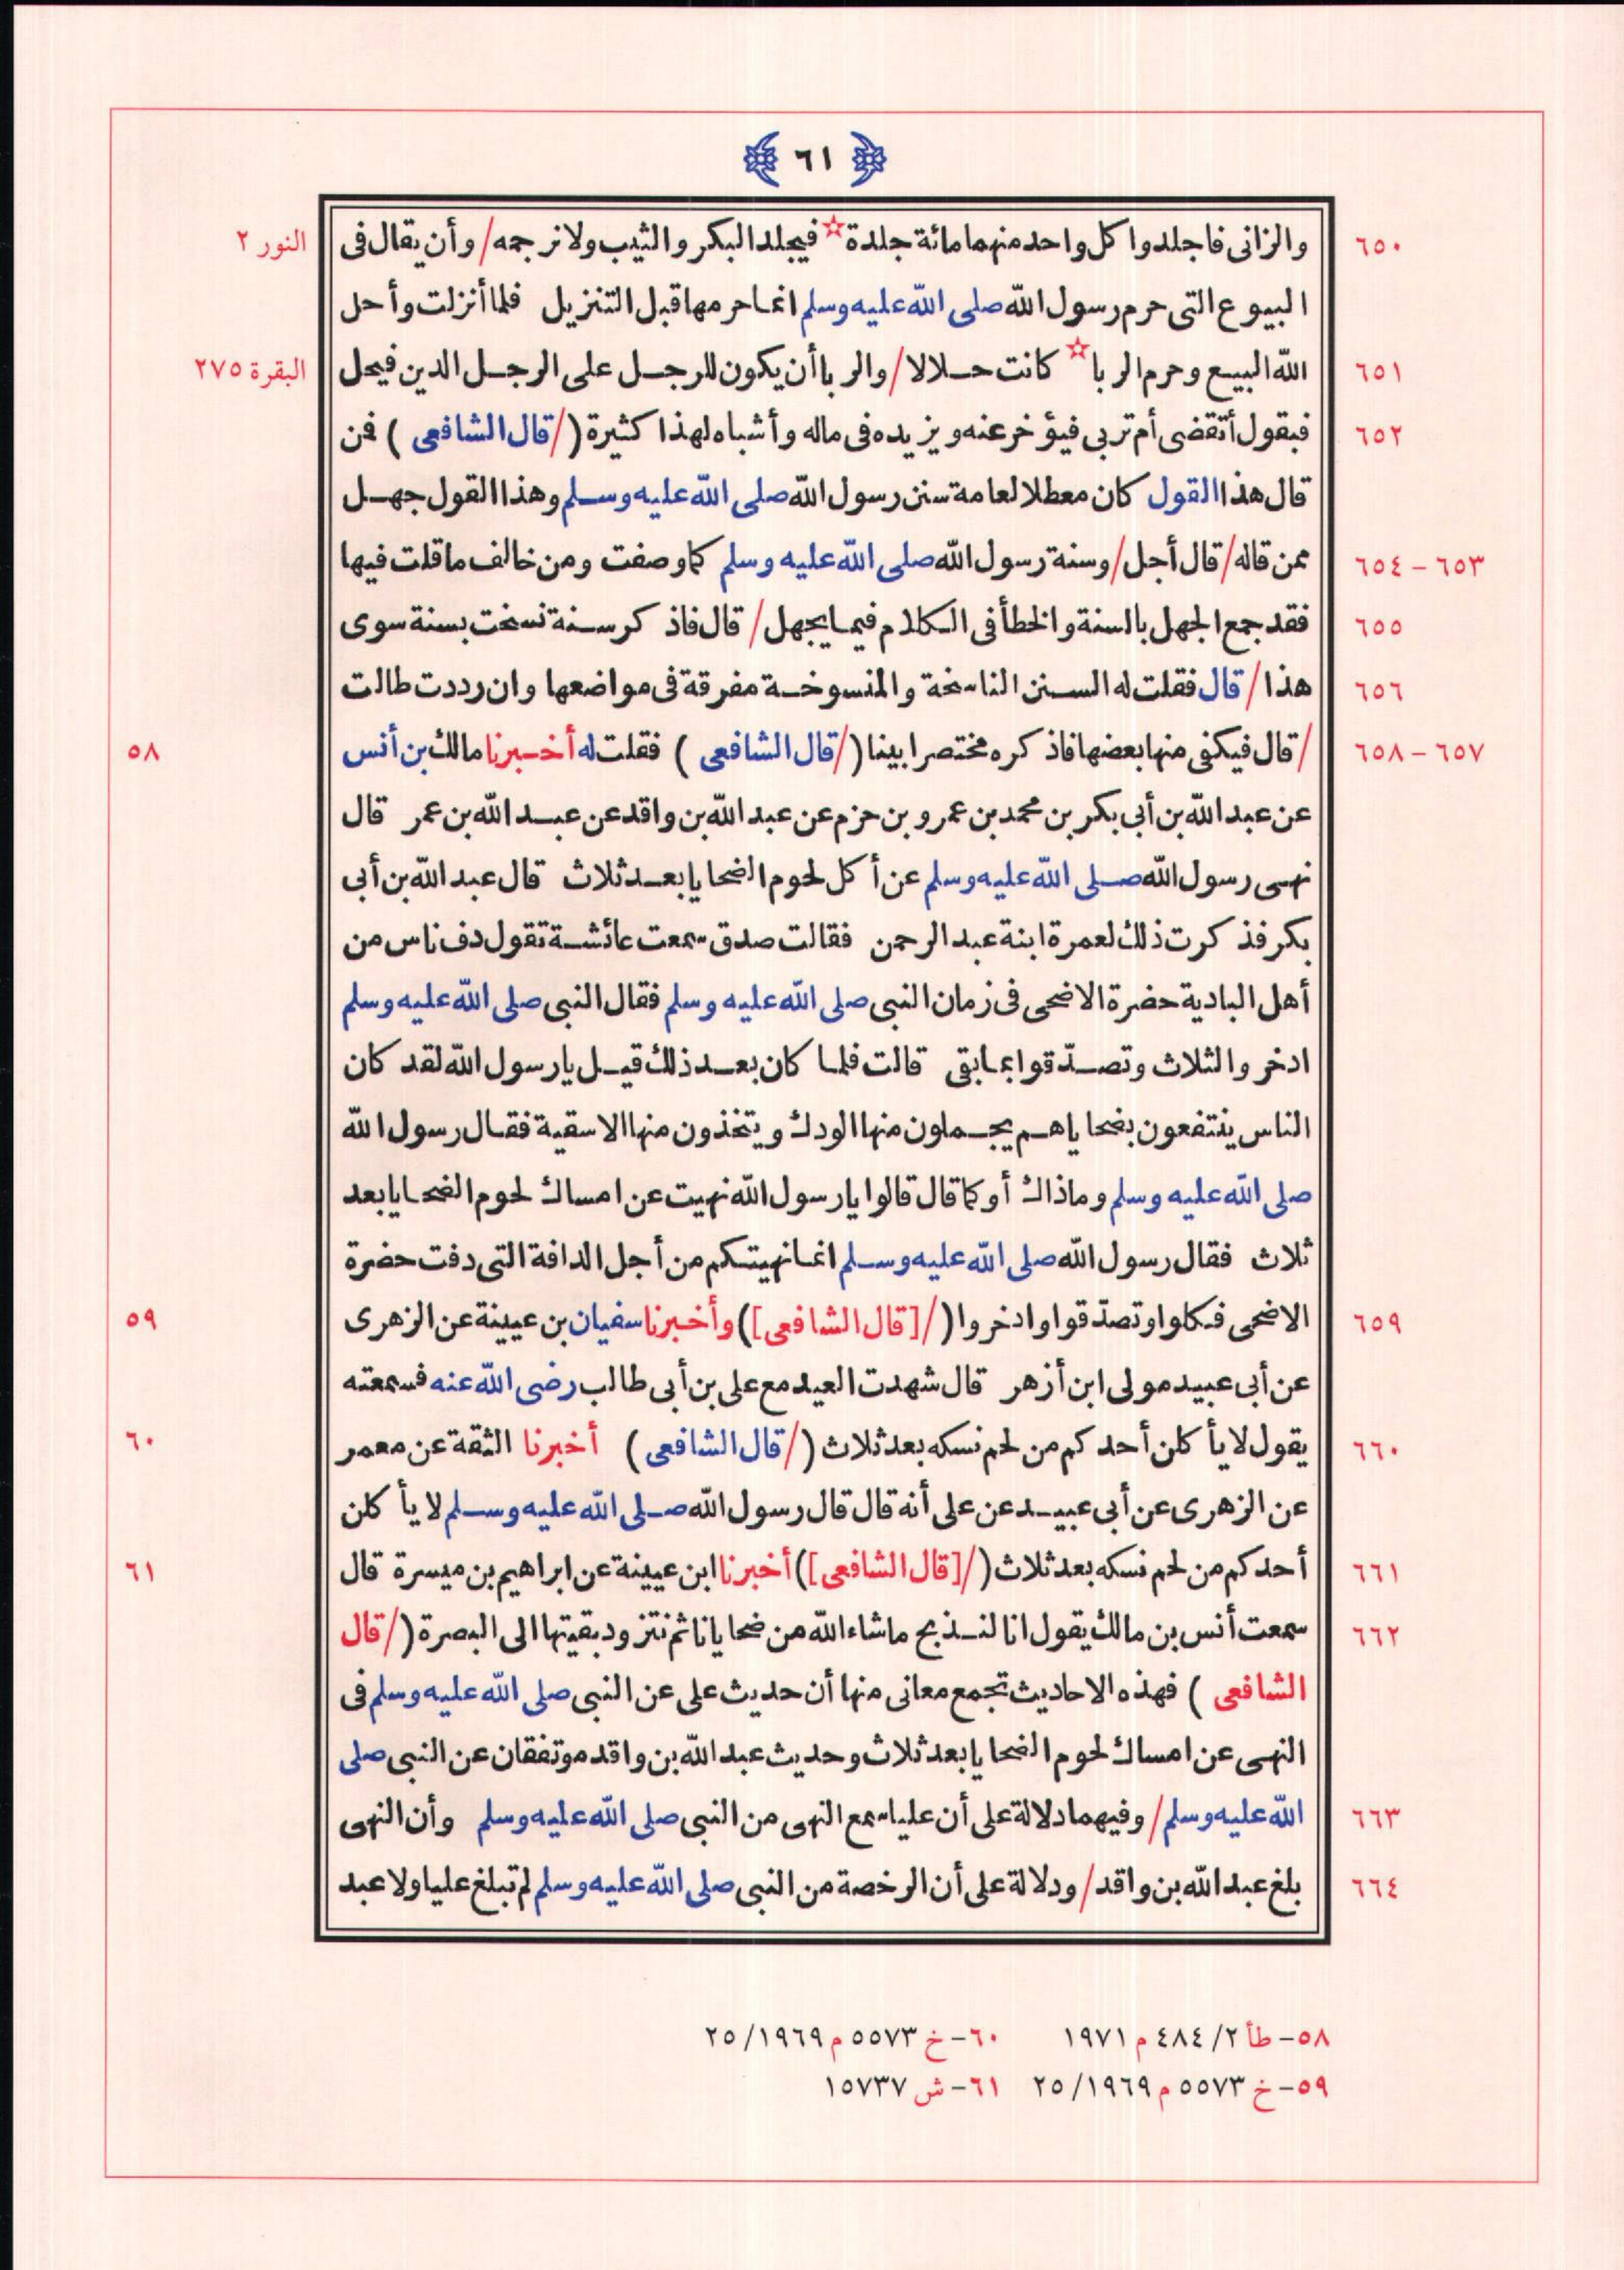 ٦١
والزانى فاجلدوا كل واحد منهما مائة جلدة ☆ فيجلد البكر والثيب ولا نرجمه / وأن يقال فى
٦٥٠
النور ٢
البيوع التى حرم رسول الله صلى الله عليه وسلم انما حرمها قبل التنزيل فلما أنزلت وأحل
الله البيع وحرم الربا ☆ كانت حلالا / والربا أن يكون للرجل على الرجل الدين فيحل
٦٥١
البقرة ٢٧٥
فيقول أتقضى أم تربى فيؤخر عنه ويزيده فى ماله وأشباه لهذا كثيرة ( / قال الشافعى ) فمن
٦٥٢
قال هذا القول كان معطلا لعامة سنن رسول الله صلى الله عليه وسلم وهذا القول جهل
ممن قاله / قال أجل / وسنة رسول الله صلى الله عليه وسلم كما وصفت ومن خالف ما قلت فيها
٦٥٣ – ٦٥٤
فقد جمع الجهل بالسنة والخطأ فى الكلام فيما يجهل / قال فاذكر سنة نسخت بسنة سوى
٦٥٥
هذا / قال فقلت له السنن الناسخة والمنسوخة مفرقة فى مواضعها وان رددت طالت
٦٥٦
/ قال فيكفى منها بعضها فاذكره مختصرا بينا ( / قال الشافعى ) فقلت له أخبرنا مالك بن أنس
٦٥٧ – ٦٥٨
٥٨
عن عبد الله بن أبى بكر بن محمد بن عمرو بن حزم عن عبد الله بن واقد عن عبد الله بن عمر قال
نهى رسول الله صلى الله عليه وسلم عن أكل لحوم الضحايا بعد ثلاث قال عبد الله بن أبى
بكر فذكرت ذلك لعمرة ابنة عبد الرحمن فقالت صدق سمعت عائشة تقول دف ناس من
أهل البادية حضرة الاضحى فى زمان النبى صلى الله عليه وسلم فقال النبى صلى الله عليه وسلم
ادخروا الثلاث وتصدّقوا بما بقى قالت فلما كان بعد ذلك قيل يا رسول الله لقد كان
الناس ينتفعون بضحاياهم يجملون منها الودك ويتخذون منها الاسقية فقال رسول الله
صلى الله عليه وسلم وماذاك أو كما قال قالوا يا رسول الله نهيت عن امساك لحوم الضحايا بعد
ثلاث فقال رسول الله صلى الله عليه وسلم انما نهيتكم من أجل الدافة التى دفت حضرة
الاضحى فكلوا وتصدّقوا وادخروا ( / [قال الشافعى] ) وأخبرنا سفيان بن عيينة عن الزهرى
٦٥٩
٥٩
عن أبى عبيد مولى ابن أزهر قال شهدت العيد مع على بن أبى طالب رضى الله عنه فسمعته
يقول لا يأكلن أحدكم من لحم نسكه بعد ثلاث ( / قال الشافعى ) أخبرنا الثقة عن معمر
٦٦٠
٦٠
عن الزهرى عن أبى عبيد عن على أنه قال قال رسول الله صلى الله عليه وسلم لا يأكلن
أحدكم من لحم نسكه بعد ثلاث ( / [قال الشافعى] ) أخبرنا ابن عيينة عن ابراهيم بن ميسرة قال
٦٦١
٦١
سمعت أنس بن مالك يقول انا لنذبح ماشاء الله من ضحايانا ثم نتزود بقيتها الى البصرة ( / قال
٦٦٢
الشافعى ) فهذه الاحاديث تجمع معانى منها أن حديث على عن النبى صلى الله عليه وسلم فى
النهى عن امساك لحوم الضحايا بعد ثلاث وحديث عبد الله بن واقد موتفقان عن النبى صلى
الله عليه وسلم / وفيهما دلالة على أن عليا سمع النهى من النبى صلى الله عليه وسلم وأن النهى
٦٦٣
بلغ عبد الله بن واقد / ودلالة على أن الرخصة من النبى صلى الله عليه وسلم لم تبلغ عليا ولا عبد
٦٦٤
٥٨– طأ ٢/ ٤٨٤ م ١٩٧١ ٦٠– خ ٥٥٧٣ م ١٩٦٩/ ٢٥
٥٩– خ ٥٥٧٣ م ١٩٦٩/ ٢٥ ٦١– ش ١٥٧٣٧